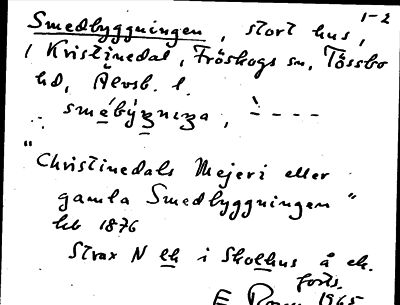 1-2
Smedbyggningen, stort hus,
i Kristinedal, Fröskogs sn, Tössbo
hd, Älvsb. l.
smébýgnıŋa, ̀- - - -
"Christinedals Mejeri eller
gamla Smedbyggningen"
hb 1876
Strax N lk i Skolhus å ek.
forts.
E 1965